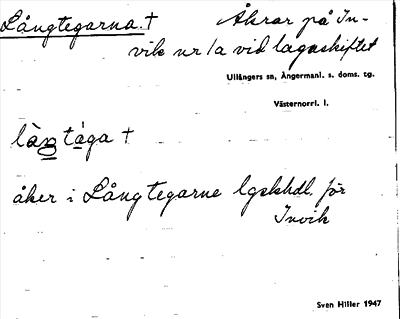 Långtegarna. † Åkrar på In-
vik nr 1a vid lagaskiftet
Ullångers sn, Ångermanl. s. doms. tg.
Västernorrl. l.
låŋ tága †
åker i Långtegarne lgskhdl. för
Invik
Sven Hiller 1947